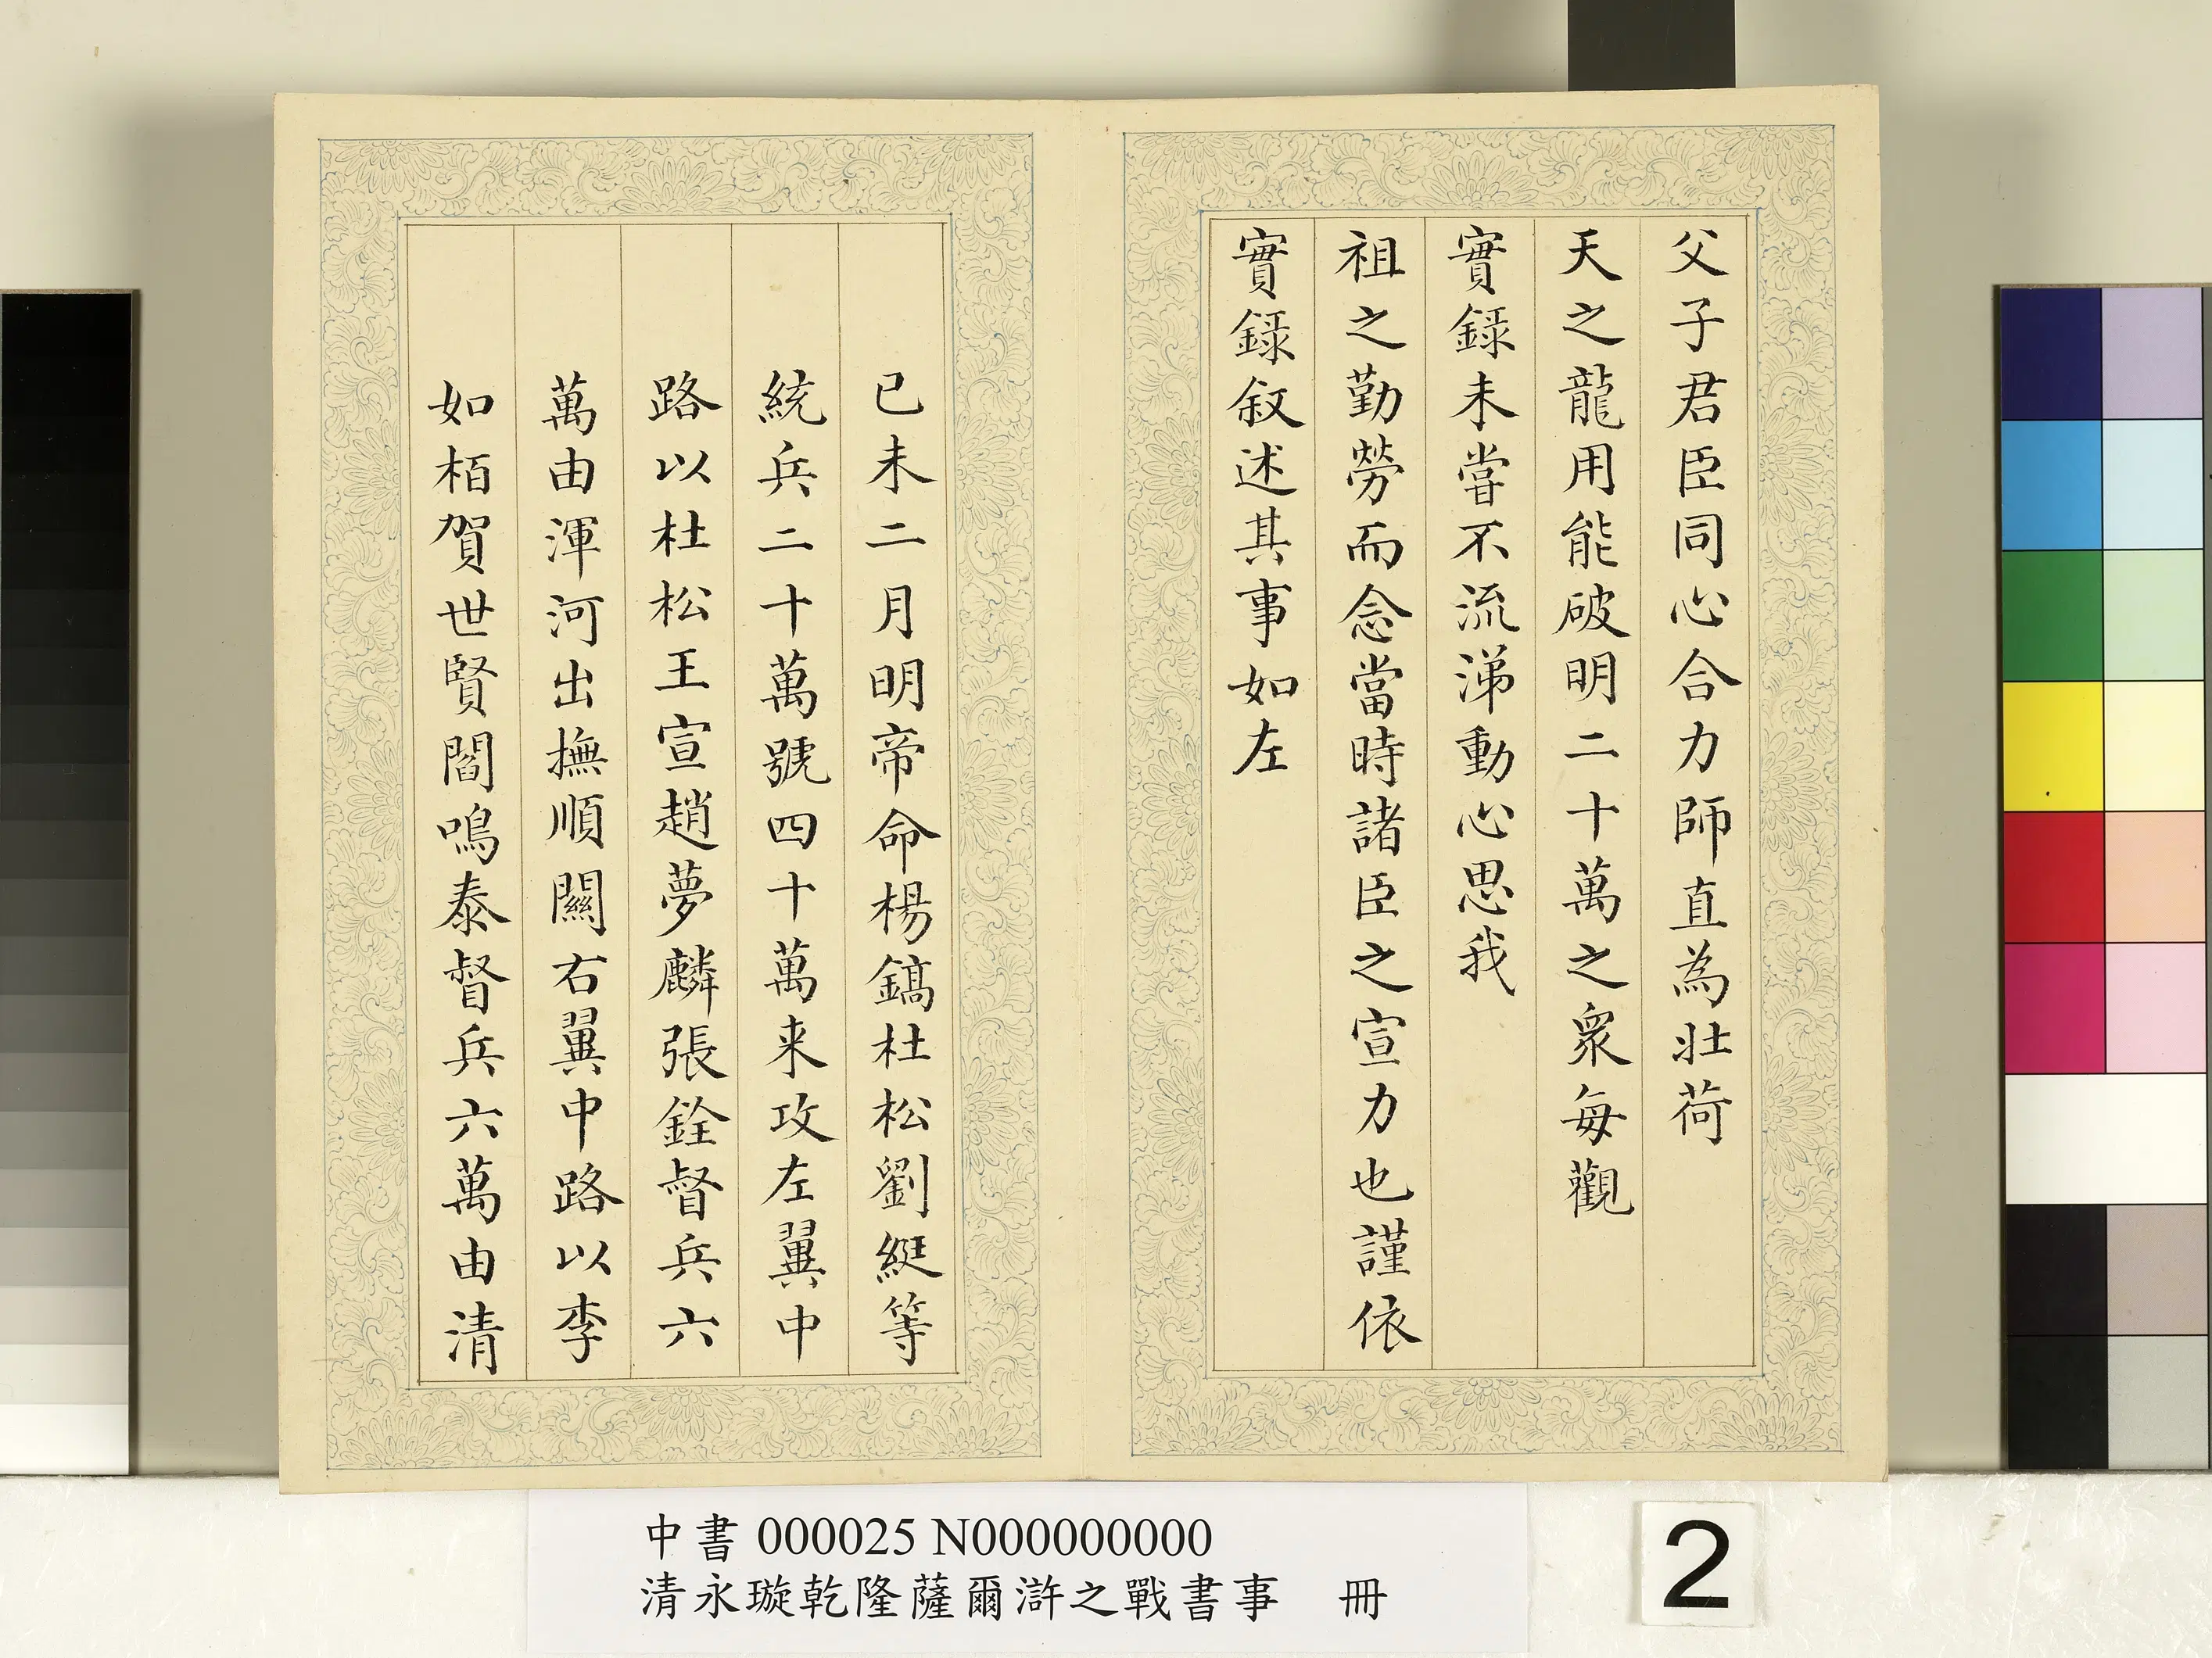 父子君臣同心合力師直為壯荷
天之龍用能破明二十萬之眾每觀
實錄未嘗不流涕動心思我
祖之勤勞而念當時諸臣之宣力也謹依
實錄叙述其事如左
已未二月明帝命楊鎬杜松劉綎等
統兵二十萬號四十萬来攻左翼中
路以杜松王宣趙夢麟張銓督兵六
萬由渾河出撫順關右翼中路以李
如栢賀世賢閻鳴泰督兵六萬由清
中書 000025 N000000000
清永璇乾隆薩爾滸之戰書事 冊
2